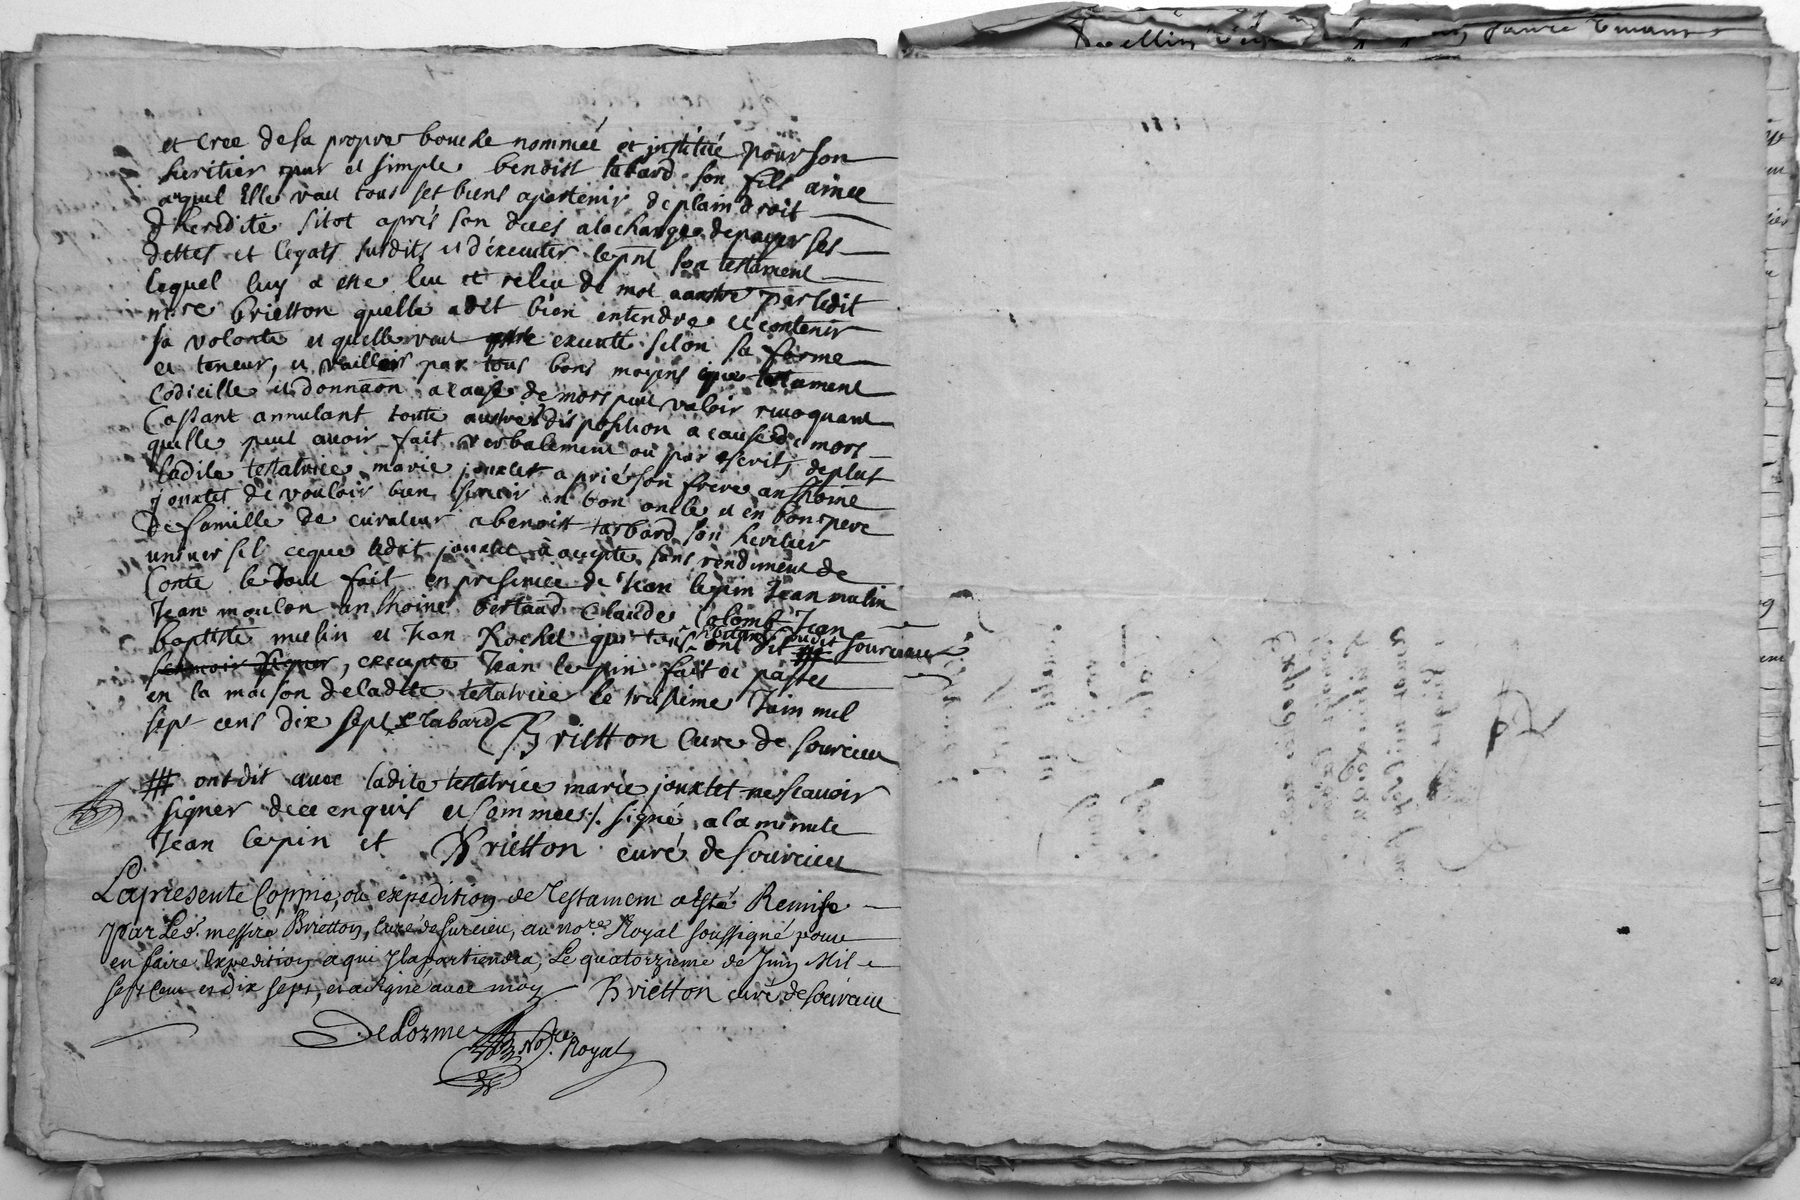 et cree de sa propre bouche nommée et institué pour son
heritier pur et simple benoist tabard son fils ainee
auquel Elle vau tous ses biens apartenir de plain droit
d'heredité sitot aprés son deces a la charge de payer ses
dettes et legats susdits et d'executer le pnt son testament
lequel luy a ete leu et releu de mot a autre par ledit
mre brietton quelle a dit bien entendre et contenir
sa volonte et quelle vau executé selon sa forme
et teneur, et valloir par tous bons moyens que testament
Codicille et donnaon a cause de mort peut valoir revoquant
Cassant annulant toute autre disposition a cause de mort
quelle peut avoir fait verbalement ou par escrit, de plus
ladite testatrice marie jouxtet a prié son frere anthoine
jouxtet de vouloir bien servir en bon oncle et en bon pere
de famille de curateur a benoist tarbard son heritier
universel ceque ledit jouxtet a accepte sans rendement de
Conte le tout fait en presence de Jean lepin Jean mulin
Jean moulon anthoine bertaud Claude Colomb Jean
baptiste mulin et Jean Rochet qui tous habitants dudit sourcieux
ont dit #
scavoir signer, excepte Jean lepin fait et passes
en la maison de ladite testatrice le troisieme Juin mil
sept cens dix sept x tabard Brietton Cure de sourcieu
# ont dit avec ladite testatrice marie jouxtet ne scavoir
signer de ce enquis et sommees /. signé a la minute
Jean lepin et Brietton curé de sourcieu
La presente Coppie, ou expedition de Testament a esté Remise
par Led. messire Brietton, Curé de Surcieu, au nore Royal soussigné pour
en faire Expedition a qui Il apartiendra, Le quatorzieme de Juin Mil
sept cent et dix sept, et a signé avec moy Brietton curé de sourcieu
DeLorme Nore Royal